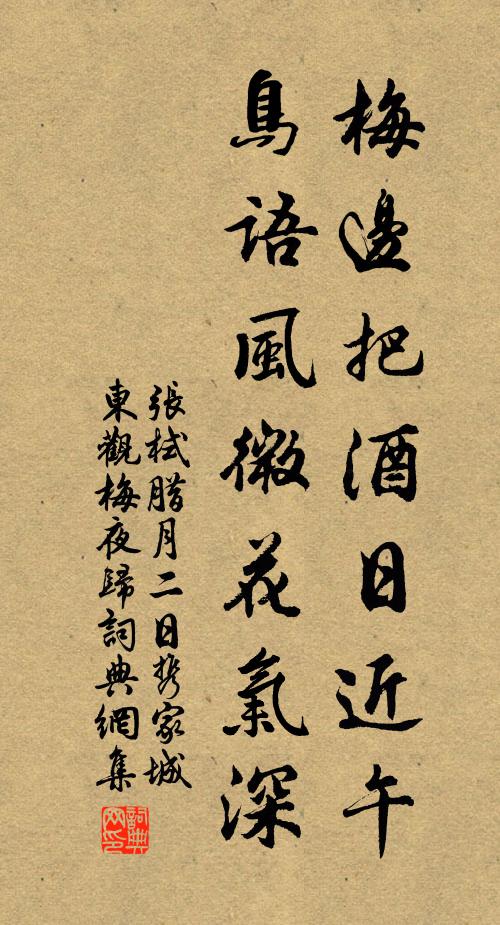 梅邊把酒日近午
鳥語風微花氣深
張栻腊月二日携家城
東觀梅夜歸詞典網集
詞典
网印